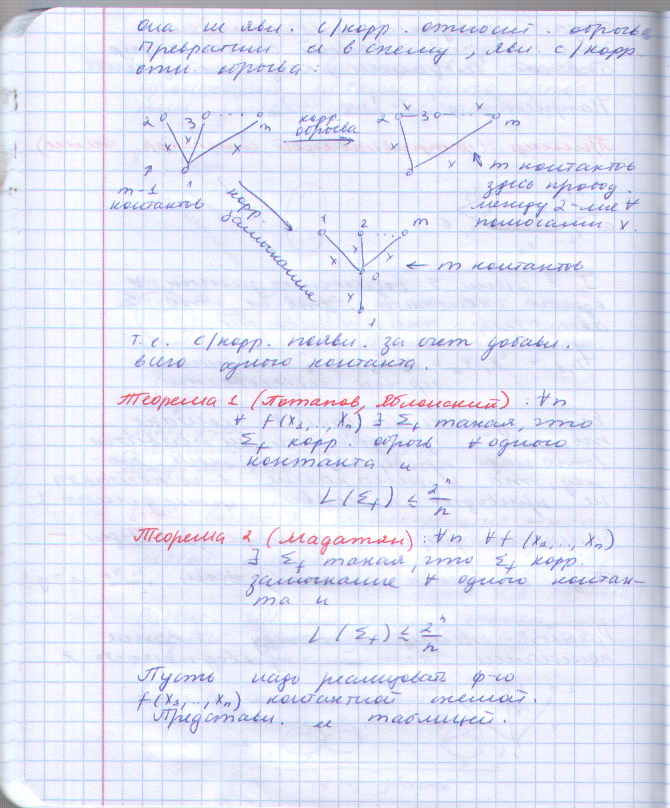 Она не явл. с/корр. относит. обрыва.
Превратим её в схему, явл. с/корр.
отн. обрыва:
2 3 ... m
x x x
1
m-1
контактов
корр.
обрыва
2 x 3 ... x m
x x
m контактов
здесь провод.
между 2-мя ∀
полюсами x.
корр.
замыкание
1 2 ... m
x x x
0
x
1
← m контактов
т.е. с/корр. появл. за счёт добавл.
всего одного контакта.
Теорема 1 (Потапов, Яблонский): ∀n
∀ f(x₁,..,xₙ) ∃ Σf такая, что
Σf корр. обрыв ∀ одного
контакта и
L(Σf) ≲ 2ⁿ/n
Теорема 2 (Мадатян): ∀n ∀f(x₁,..,xₙ)
∃ Σf такая, что Σf корр.
замыкание ∀ одного контак-
та и
L(Σf) ≲ 2ⁿ/n
Пусть надо реализовать ф-ю
f(x₁,..,xₙ) контактной схемой.
Представл. её таблицей.